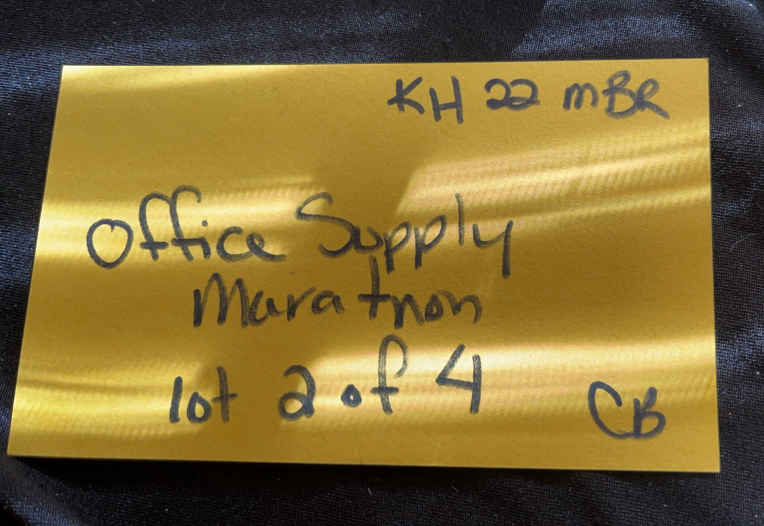 KH 22 mBR
Office Supply
Marathon
lot 2 of 4
CB